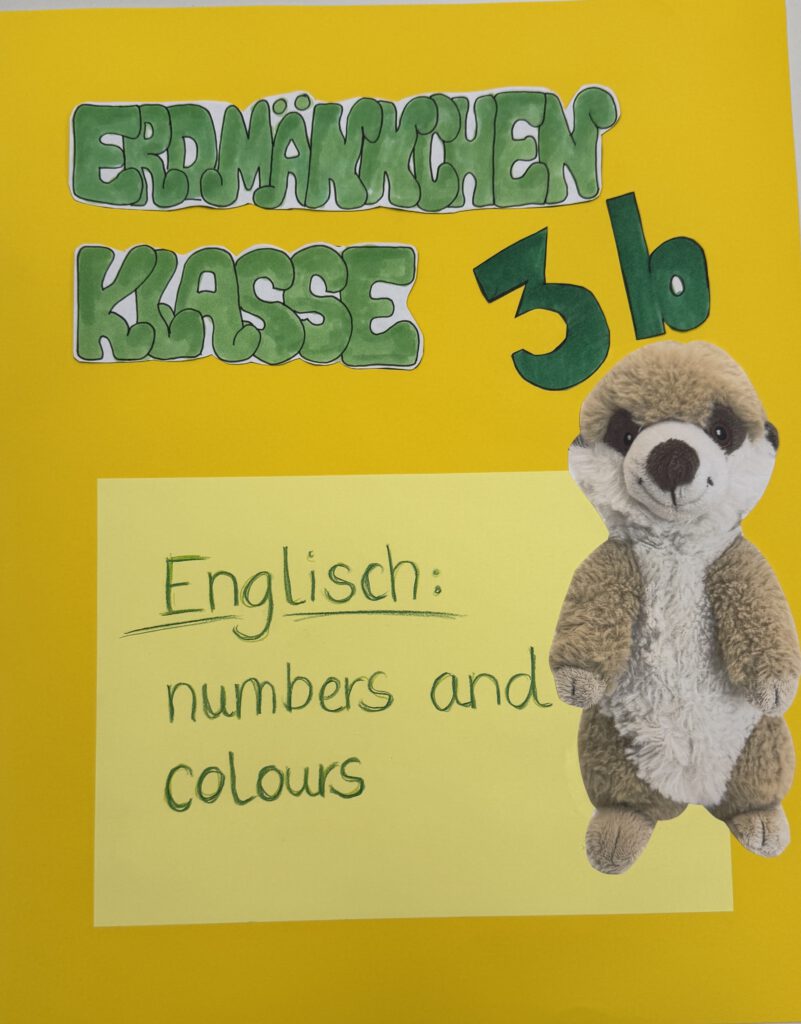 ERDMÄNNCHEN
KLASSE 3b
Englisch:
numbers and
colours